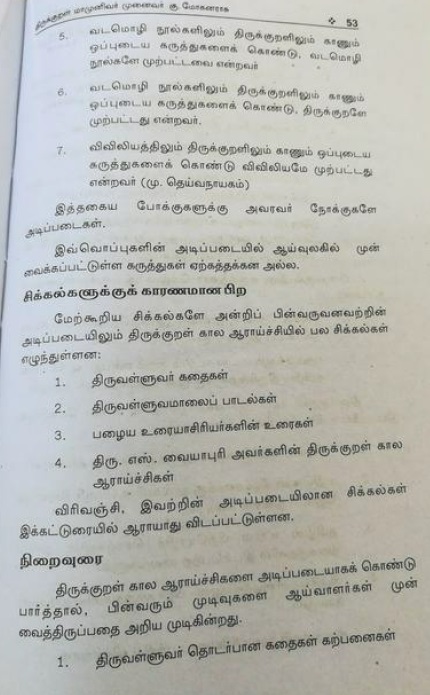 திருக்குறள் மாமுனிவர் முனைவர் கு. மோகனராசு
❖ 53
5. வடமொழி நூல்களிலும் திருக்குறளிலும் காணும்
ஒப்புடைய கருத்துகளைக் கொண்டு, வடமொழி
நூல்களே முற்பட்டவை என்றவர்
6. வடமொழி நூல்களிலும் திருக்குறளிலும் காணும்
ஒப்புடைய கருத்துகளைக் கொண்டு, திருக்குறளே
முற்பட்டது என்றவர்.
7. விவிலியத்திலும் திருக்குறளிலும் காணும் ஒப்புடைய
கருத்துகளைக் கொண்டு விவிலியமே முற்பட்டது
என்றவர் (மு. தெய்வநாயகம்)
இத்தகைய போக்குகளுக்கு அவரவர் நோக்குகளே
அடிப்படைகள்.
இவ்வொப்புகளின் அடிப்படையில் ஆய்வுலகில் முன்
வைக்கப்பட்டுள்ள கருத்துகள் ஏற்கத்தக்கன அல்ல.
சிக்கல்களுக்குக் காரணமான பிற
மேற்கூறிய சிக்கல்களே அன்றிப் பின்வருவனவற்றின்
அடிப்படையிலும் திருக்குறள் கால ஆராய்ச்சியில் பல சிக்கல்கள்
எழுந்துள்ளன:
1. திருவள்ளுவர் கதைகள்
2. திருவள்ளுவமாலைப் பாடல்கள்
3. பழைய உரையாசிரியர்களின் உரைகள்
4. திரு. எஸ். வையாபுரி அவர்களின் திருக்குறள் கால
ஆராய்ச்சிகள்
விரிவஞ்சி, இவற்றின் அடிப்படையிலான சிக்கல்கள்
இக்கட்டுரையில் ஆராயாது விடப்பட்டுள்ளன.
நிறைவுரை
திருக்குறள் கால ஆராய்ச்சிகளை அடிப்படையாகக் கொண்டு
பார்த்தால், பின்வரும் முடிவுகளை ஆய்வாளர்கள் முன்
வைத்திருப்பதை அறிய முடிகின்றது.
1. திருவள்ளுவர் தொடர்பான கதைகள் கற்பனைகள்